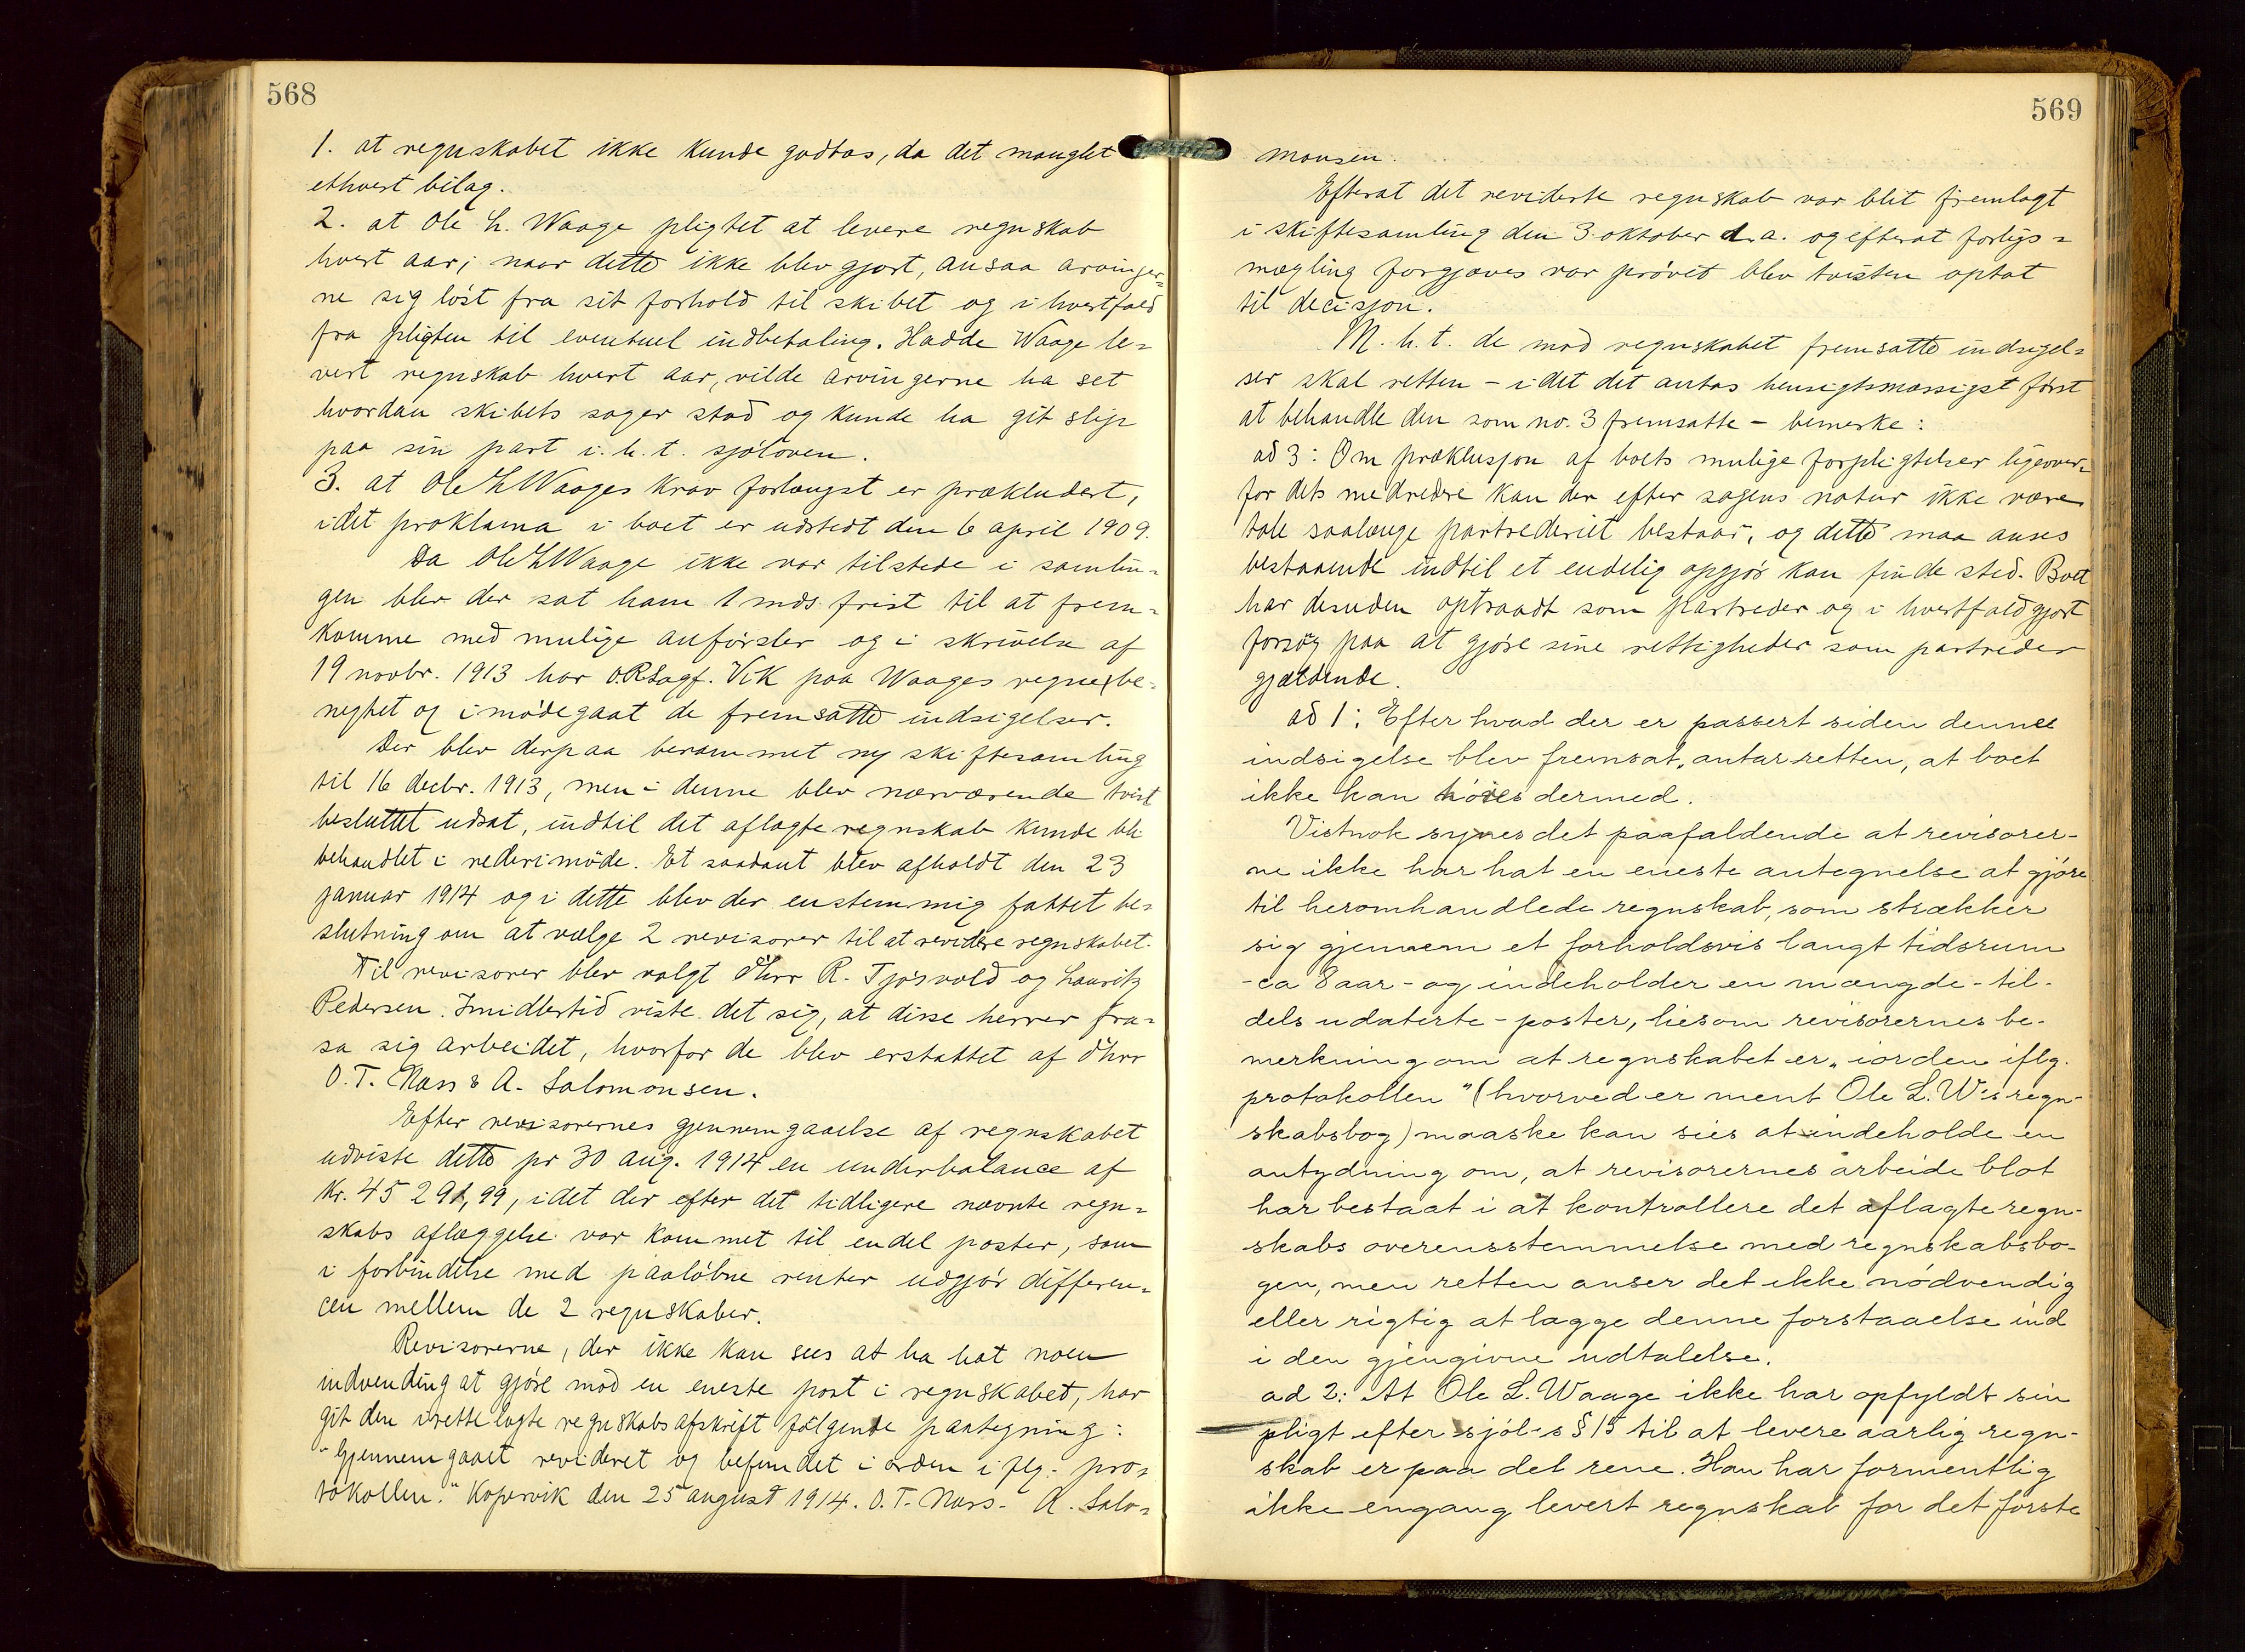 568
1. at regnskabet ikke kunde godtas, da det manglet
ethvert bilag.
2. at Ole L. Waage pligtet at levere regnskab
hvert aar; naar dette ikke blev gjort, ansaa arvinger=
ne sig løst fra sit forhold til skibet og i hvertfald
fra pligten til eventuel indbetaling. Hadde Waage le=
vert regnskab hvert aar, vilde arvingerne ha set
hvordan skibets sager stod og kunde ha git slip
paa sin part i. h. t. sjøloven.
3. at Ole L Waages krav forlængst er prækludert,
idet proklama i boet er udstedt den 6 april 1909.
Da Ole L Waage ikke var tilstede i samlin=
gen blev der sat ham 1 mds. frist til at frem=
komme med mulige anførsler og i skrivelse af
19 novbr. 1913 har O.R.Sagf. Vik paa Waages vegne be=
negtet og imødegaat de fremsatte indsigelser.
Der blev derpaa berammet ny skiftesamling
til 16 decbr. 1913, men i denne blev nærværende tvist
besluttet udsat, indtil det aflagte regnskab kunde bli
behandlet i rederimøde. Et saadant blev afholdt den 23
januar 1914 og i dette blev der enstemmig fattet be=
slutning om at vælge 2 revisorer til at revidere regnskabet.
Til revisorer blev valgt dhrr R. Tjøsvold og Lauritz
Pedersen. Imidlertid viste det sig, at disse herrer fra=
sa sig arbeidet, hvorfor de blev erstattet af dhrr
O. T. Næss & A. Salomonsen.
Efter revisorernes gjennemgaaelse af regnskabet
udviste dette pr 30 aug. 1914 en underbalance af
Kr. 45 291,99, idet der efter det tidligere nævnte regn=
skabs aflæggelse var kommet til endel poster, som
i forbindelse med paaløbne renter udgjør differen=
cen mellem de 2 regnskaber.
Revisorerne, der ikke kan sees at ha hat noen
indvending at gjøre mod en eneste post i regnskabet, har
git den irettelagte regnskabsafskrift følgende paategning:
"Gjennemgaaet revideret og befundet i orden iflg. pro=
tokollen." Kopervik den 25 august 1914. O. T. Næss. A. Salo=
569
monsen.
Efterat det reviderte regnskab var blit fremlagt
i skiftesamling den 3 oktober d. a. og efterat forligs=
mægling forgjæves var prøvet blev tvisten optat
til decisjon.
M. h. t. de mod regnskabet fremsatte indsigel=
ser skal retten - idet det antas hensigtsmæssigst først
at behandle den som no. 3 fremsatte - bemerke:
ad 3: Om præklusjon af boets mulige forpligtelser ligeover=
for dets medredere kan der efter sagens natur ikke være
tale saalænge partrederiet bestaar, og dette maa anses
bestaaende indtil et endelig opgjør kan finde sted. Boet
har desuden optraadt som partreder og i hvertfald gjort
forsøg paa at gjøre sine rettigheder som partreder
gjældende.
ad 1: Efter hvad der er passert siden denne
indsigelse blev fremsat, antar retten, at boet
ikke kan høies dermed.
Vistnok synes det paafaldende at revisorer-
ne ikke har hat en eneste antegnelse at gjøre
til heromhandlede regnskab, som strækker
sig gjennem et forholdsvis langt tidsrum
- ca 8 aar - og indeholder en mængde - til-
dels udaterte - poster, liesom revisorernes be-
merkning om at regnskabet er "iorden iflg.
protokollen" (hvorved er ment Ole L. W's regn-
skabsbog) maaske kan sies at indeholde en
antydning om, at revisorernes arbeide blot
har bestaat i at kontrollere det aflagte regn-
skabs overensstemmelse med regnskabsbo-
gen, men retten anser det ikke nødvendig
eller rigtig at lægge denne forstaaelse ind
i den gjengivne udtalelse.
ad 2: At Ole L. Waage ikke har opfyldt sin
pligt efter sjøl-s § 15 til at levere aarlig regn-
skab er paa det rene. Han har formentlig
ikke engang levert regnskab for det første